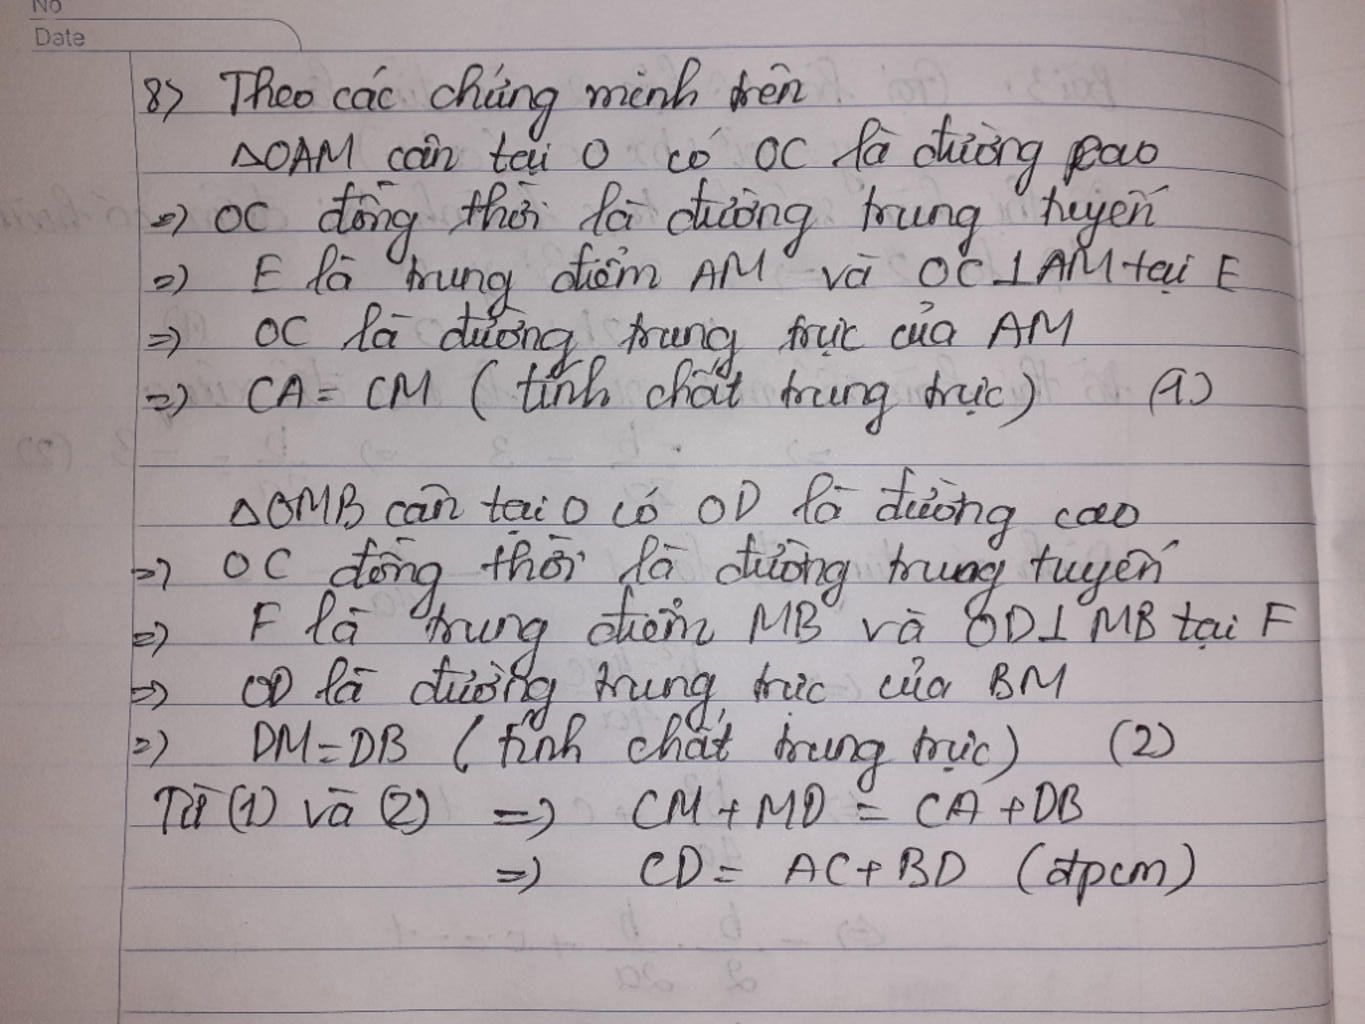 No
Date
8) Theo các chứng minh trên
ΔOAM cân tại O có OC là đường cao
=) OC đồng thời là đường trung tuyến
=) E là trung điểm AM và OC⊥AM tại E
=) OC là đường trung trực của AM
=) CA = CM (tính chất trung trực) (1)
ΔOMB cân tại O có OD là đường cao
=) OC đồng thời là đường trung tuyến
=) F là trung điểm MB và OD⊥MB tại F
=) OD là đường trung trực của BM
=) DM=DB (tính chất trung trực) (2)
Từ (1) và (2) =) CM + MD = CA + DB
=) CD = AC + BD (đpcm)